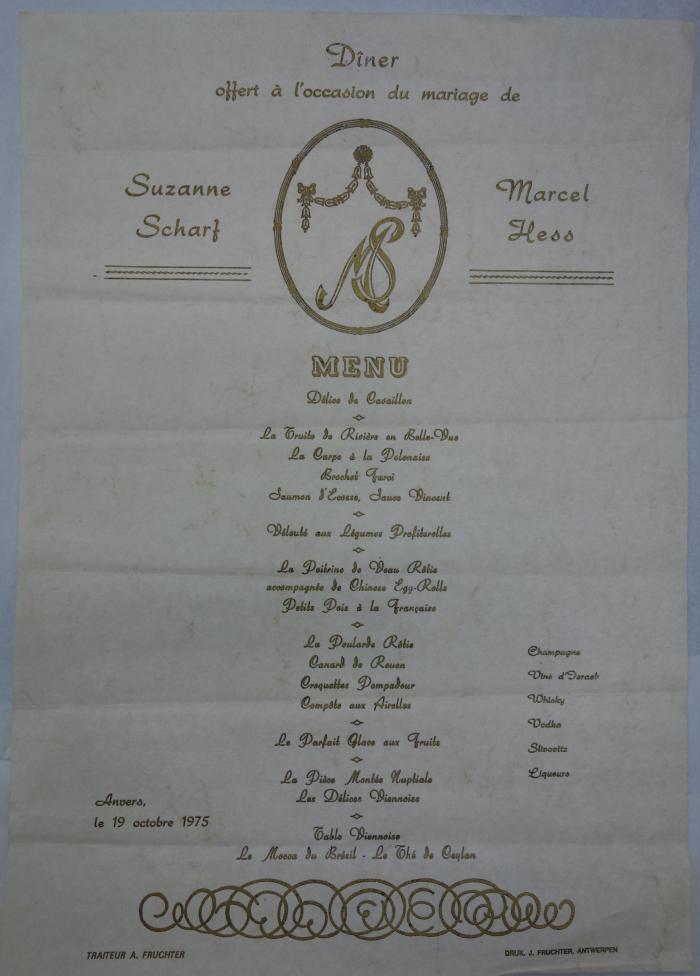 Dîner
offert à l'occasion du mariage de
Suzanne
Scharf
Marcel
Hess
MS
MENU
Délice de Cavaillon
La Truite de Rivière en Belle-Vue
La Carpe à la Polonaise
Brochet Farci
Saumon d'Ecosse, Sauce Vincent
Vélouté aux Légumes Profiterolles
La Poitrine de Veau Rôtie
accompagnée de Chinese Egg-Rolls
Petits Pois à la Française
La Poularde Rôtie
Canard de Rouen
Croquettes Pompadour
Compôte aux Airelles
Le Parfait Glace aux Fruits
La Pièce Montée Nuptiale
Les Délices Viennoise
Table Viennoise
Le Mocca du Brésil - Le Thé de Ceylan
Champagne
Vins d'Israel
Whisky
Vodka
Slivovitz
Liqueurs
Anvers,
le 19 octobre 1975
TRAITEUR A. FRUCHTER
DRUK. J. FRUCHTER, ANTWERPEN